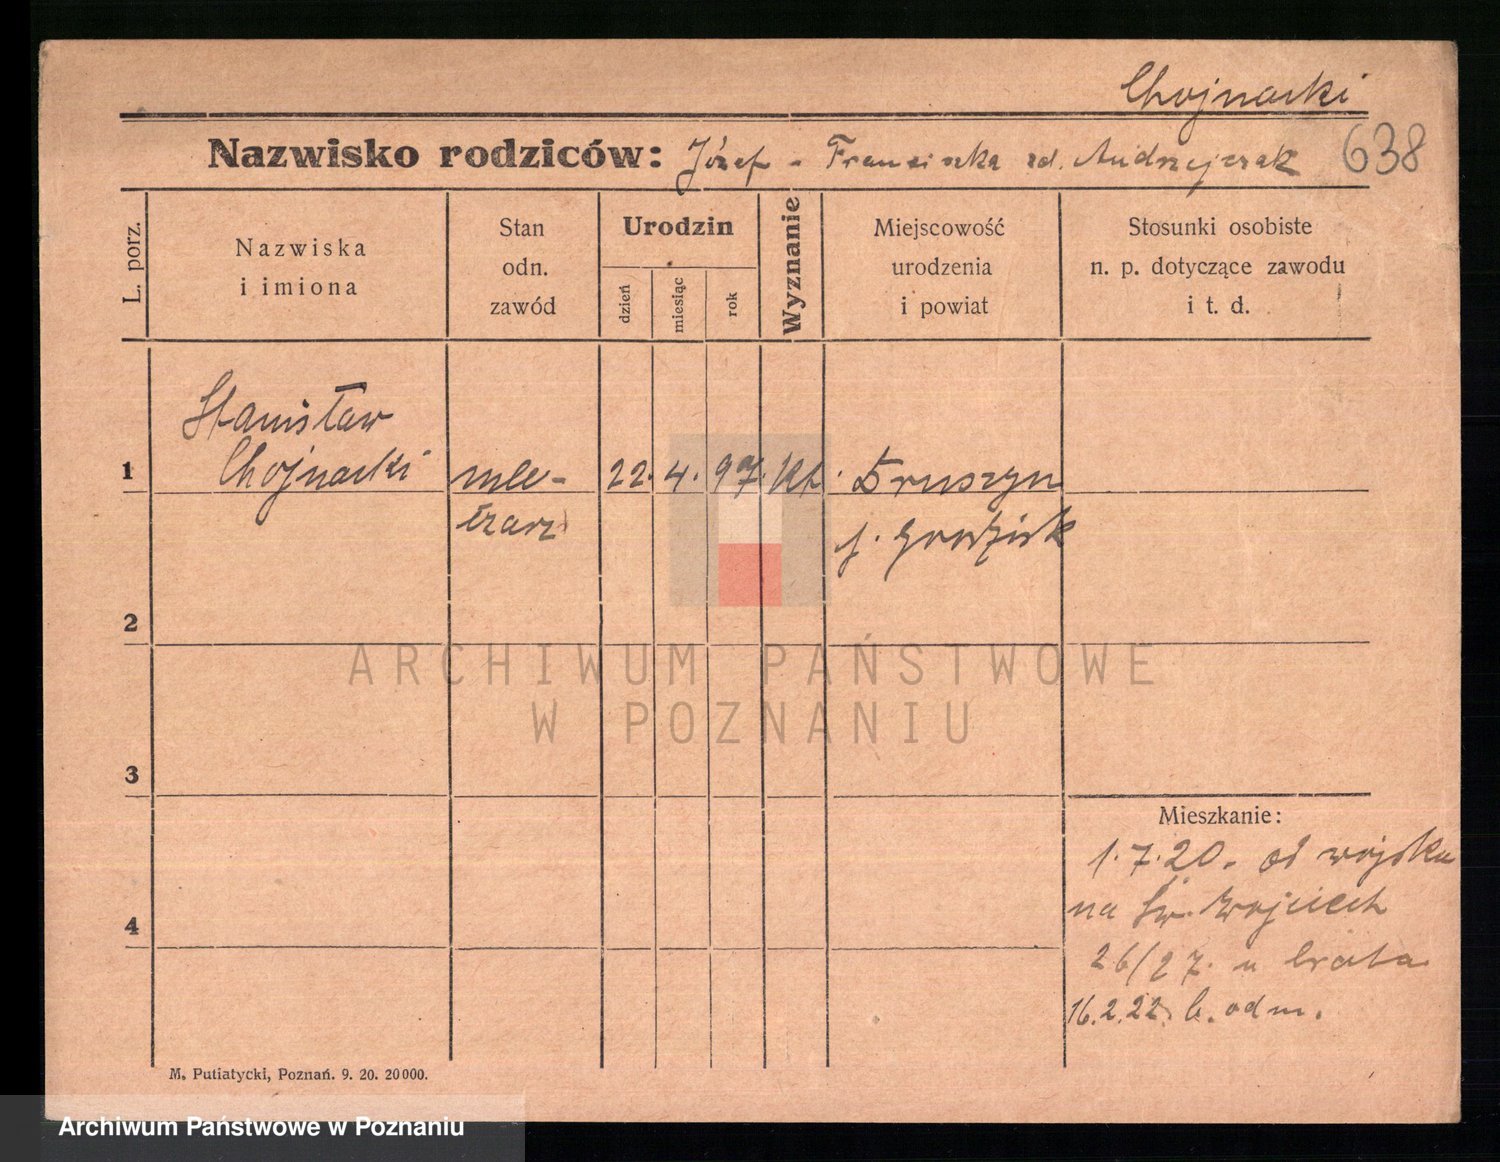 Chojnacki
Nazwisko rodziców: Józef - Franciszka zd. Andrzejczak 638
L. porz.
Nazwiska
i imiona
Stan
odn.
zawód
Urodzin
dzień
miesiąc
rok
Wyznanie
Miejscowość
urodzenia
i powiat
Stosunki osobiste
n. p. dotyczące zawodu
i t. d.
Stanisław
1 Chojnacki mle- 22. 4. 97. kt. Druszyn
czarz
p. Grodzisk
2
ARCHIWUM PAŃSTWOWE
W POZNANIU
3
Mieszkanie:
1.7.20. od wojska
na Św. Wojciech
4
26/27. u brata
16.2.22. b. odm.
M. Putiatycki, Poznań. 9. 20. 20000.
Archiwum Państwowe w Poznaniu